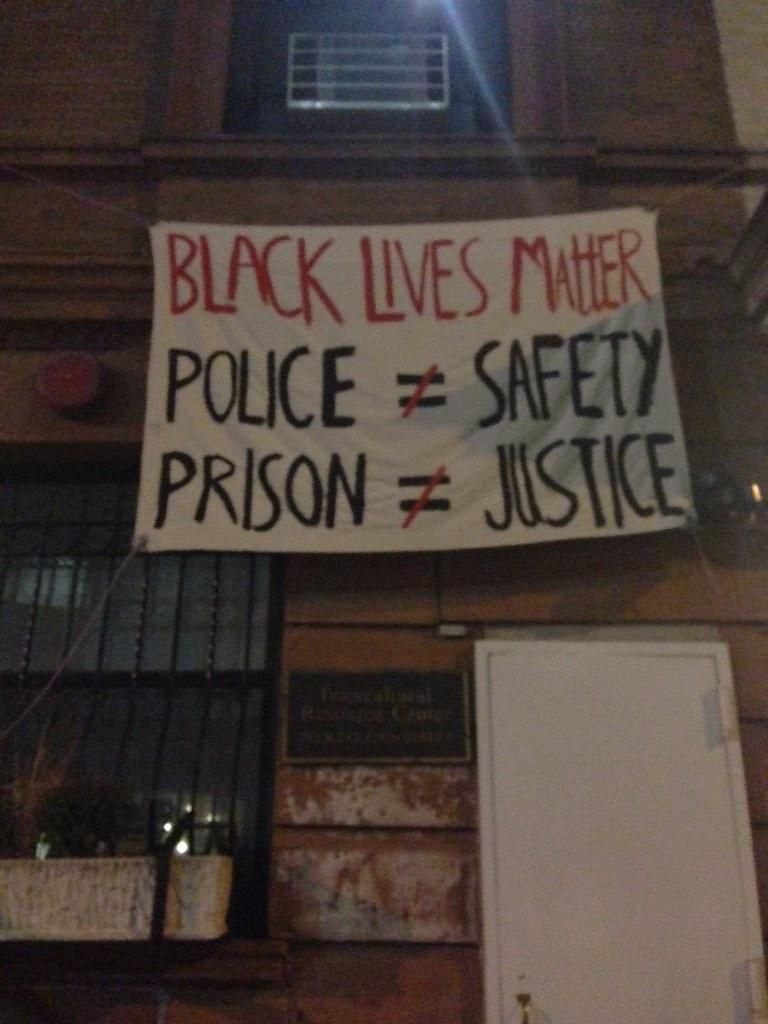 BLACK LIVES MATTER
POLICE ≠ SAFETY
PRISON ≠ JUSTICE
Intercultural
Resource Center